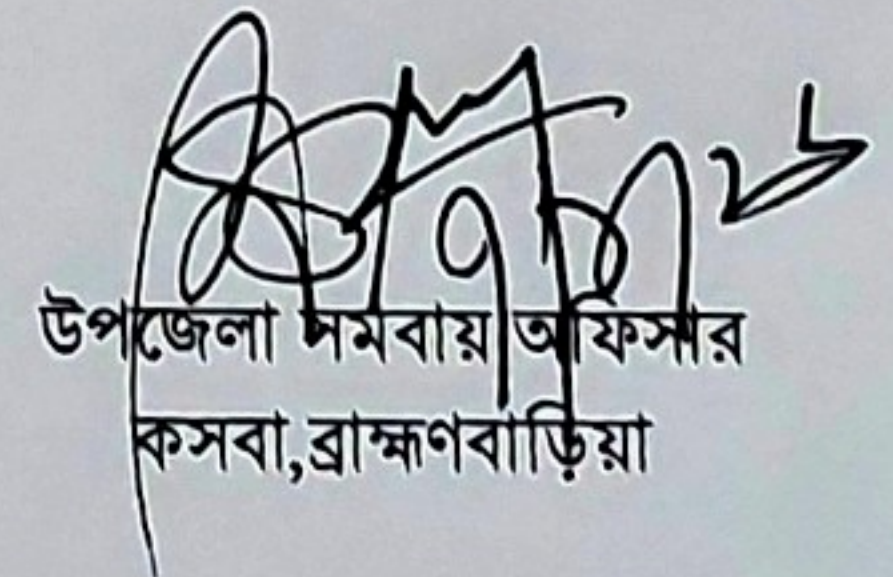 উপজেলা সমবায় অফিসার
কসবা,ব্রাহ্মণবাড়িয়া